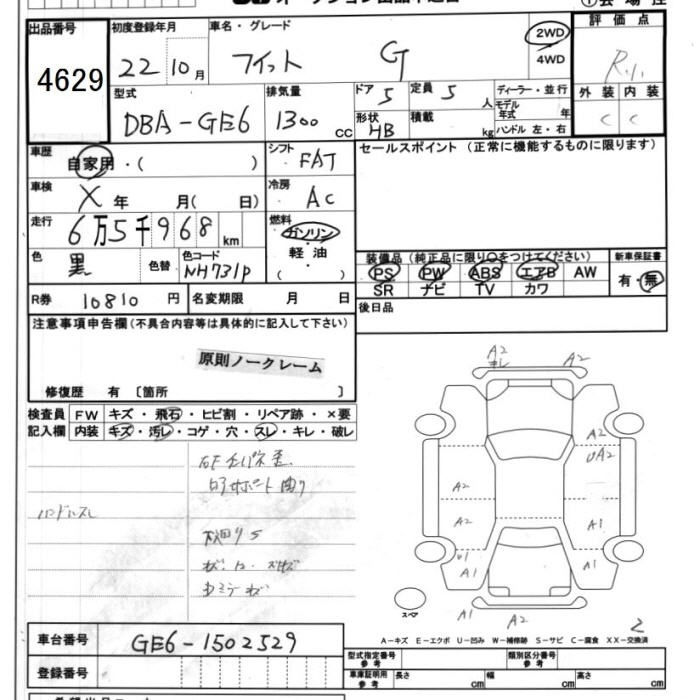 出品番号 初度登録年月 車名・グレード 評価点
4629 22年10月 フィット G 2WD R.1.
4WD
外装 内装
型式 排気量 ドア 5 定員 5人 ディーラー・並行
DBA-GE6 1300cc 形状 HB 積載 kg モデル年式 年 C C
ハンドル 左・右
車歴 自家用・( ) シフト FAT セールスポイント (正常に機能するものに限ります)
車検 X年 月( 日) 冷房 AC
走行 6万5千968km 燃料 ガソリン
軽油
( )
色 黒 色替 色コード NH731P
装備品 (純正品に限り○をつけてください) 新車保証書
PS PW ABS エアB AW 有・無
SR ナビ TV カワ
R券 10810円 名変期限 月 日 後日品
注意事項申告欄(不具合内容等は具体的に記入して下さい)
原則ノークレーム
修復歴 有 〔箇所 〕
検査員 FW キズ・飛石・ヒビ割・リペア跡・×要
記入欄 内装 キズ・汚レ・コゲ・穴・スレ・キレ・破レ
ハンドルスレ
A2 A2
A2
UA2
A2
A2 A1
U1
A1 A1
スペア
A1 A2
2
A-キズ E-エクボ U-凹み W-補修跡 S-サビ C-腐食 XX-交換済
車台番号 GE6-1502529
登録番号
型式指定番号 参考 類別区分番号 参考
車庫証明用 参考 長さ cm 幅 cm 高さ cm